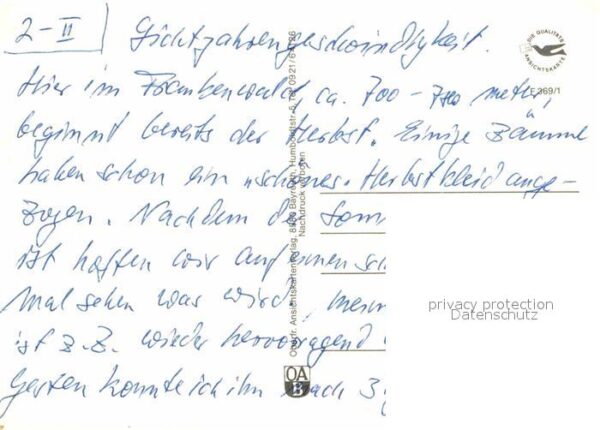 2-II Lichtjahrengeschwindigkeit.
Hier im Frankenwald, ca. 700 - 750 meter,
beginnt bereits der Herbst. Einige Bäume
haben schon ein „schönes" Herbstkleid ange-
zogen. Nachdem der Som
ist hoffen wir auf einen
Mal sehen was wird,
ist z.Z. wieder hervorragend
Gestern konnte ich ihn nach 3
DIE QUALITÄTS
ANSICHTSKARTE
F 369/1
Oberfr. Ansichtskartenverlag, 8580 Bayreuth, Humboldtstr.
Nachdruck verboten
OA
B
privacy protection
Datenschutz